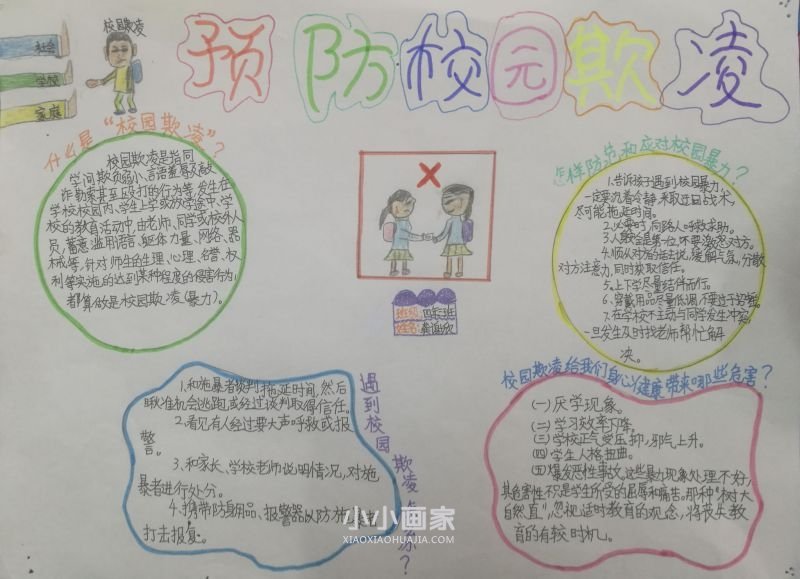 社会
学校
家庭
校园欺凌
预防校园欺凌
什么是“校园欺凌”?
校园欺凌是指同
学间欺负弱小、言语羞辱及敲
诈勒索甚至殴打的行为等,发生在
学校校园内、学生上学或放学途中、学
校的教育活动中,由老师、同学或校外人
员,蓄意滥用语言、躯体力量、网络、器
械等,针对师生的生理、心理、名誉、权
利等实施的达到某种程度的侵害行为,
都算做是校园欺凌(暴力)。
班级:四
班
姓名:龚
欣
怎样防范和应对校园暴力?
1.告诉孩子遇到校园暴力,
一定要沉着冷静,采取迂回战术,
尽可能拖延时间。
2.必要时,向路人呼救求助。
3.人
安全是第一位,不要激怒对方。
4.顺从对方的话去说,缓解气氛,分散
对方注意力,同时获取信任。
5.上下学尽量结伴而行。
6.穿戴用品尽量低调,不要过于招摇。
7.在学校不主动与同学发生冲突,
一旦发生及时找老师帮忙解
决。
遇到校园欺凌
?
1.和施暴者谈判,拖延时间,然后
瞅准机会逃跑,或经过谈判取得信任。
2.看见有人经过要大声呼救或报
警。
3.和家长、学校老师说明情况,对施
暴者进行处分。
4.携带防身用品、报警器以防
打击报复。
校园欺凌给我们身心健康带来哪些危害?
(一)厌学现象。
(二)学习效率下降。
(三)学校正气受压抑,邪气上升。
(四)学生人格扭曲。
(五)爆发恶性事故,这些暴力现象处理不好,
其危害性不只是学生所受的屈辱和痛苦。那种“树大
自然直”,忽视适时教育的观念,将丧失教
育的有效时机。
小小画家
XIAOXIAOHUAJIA.COM